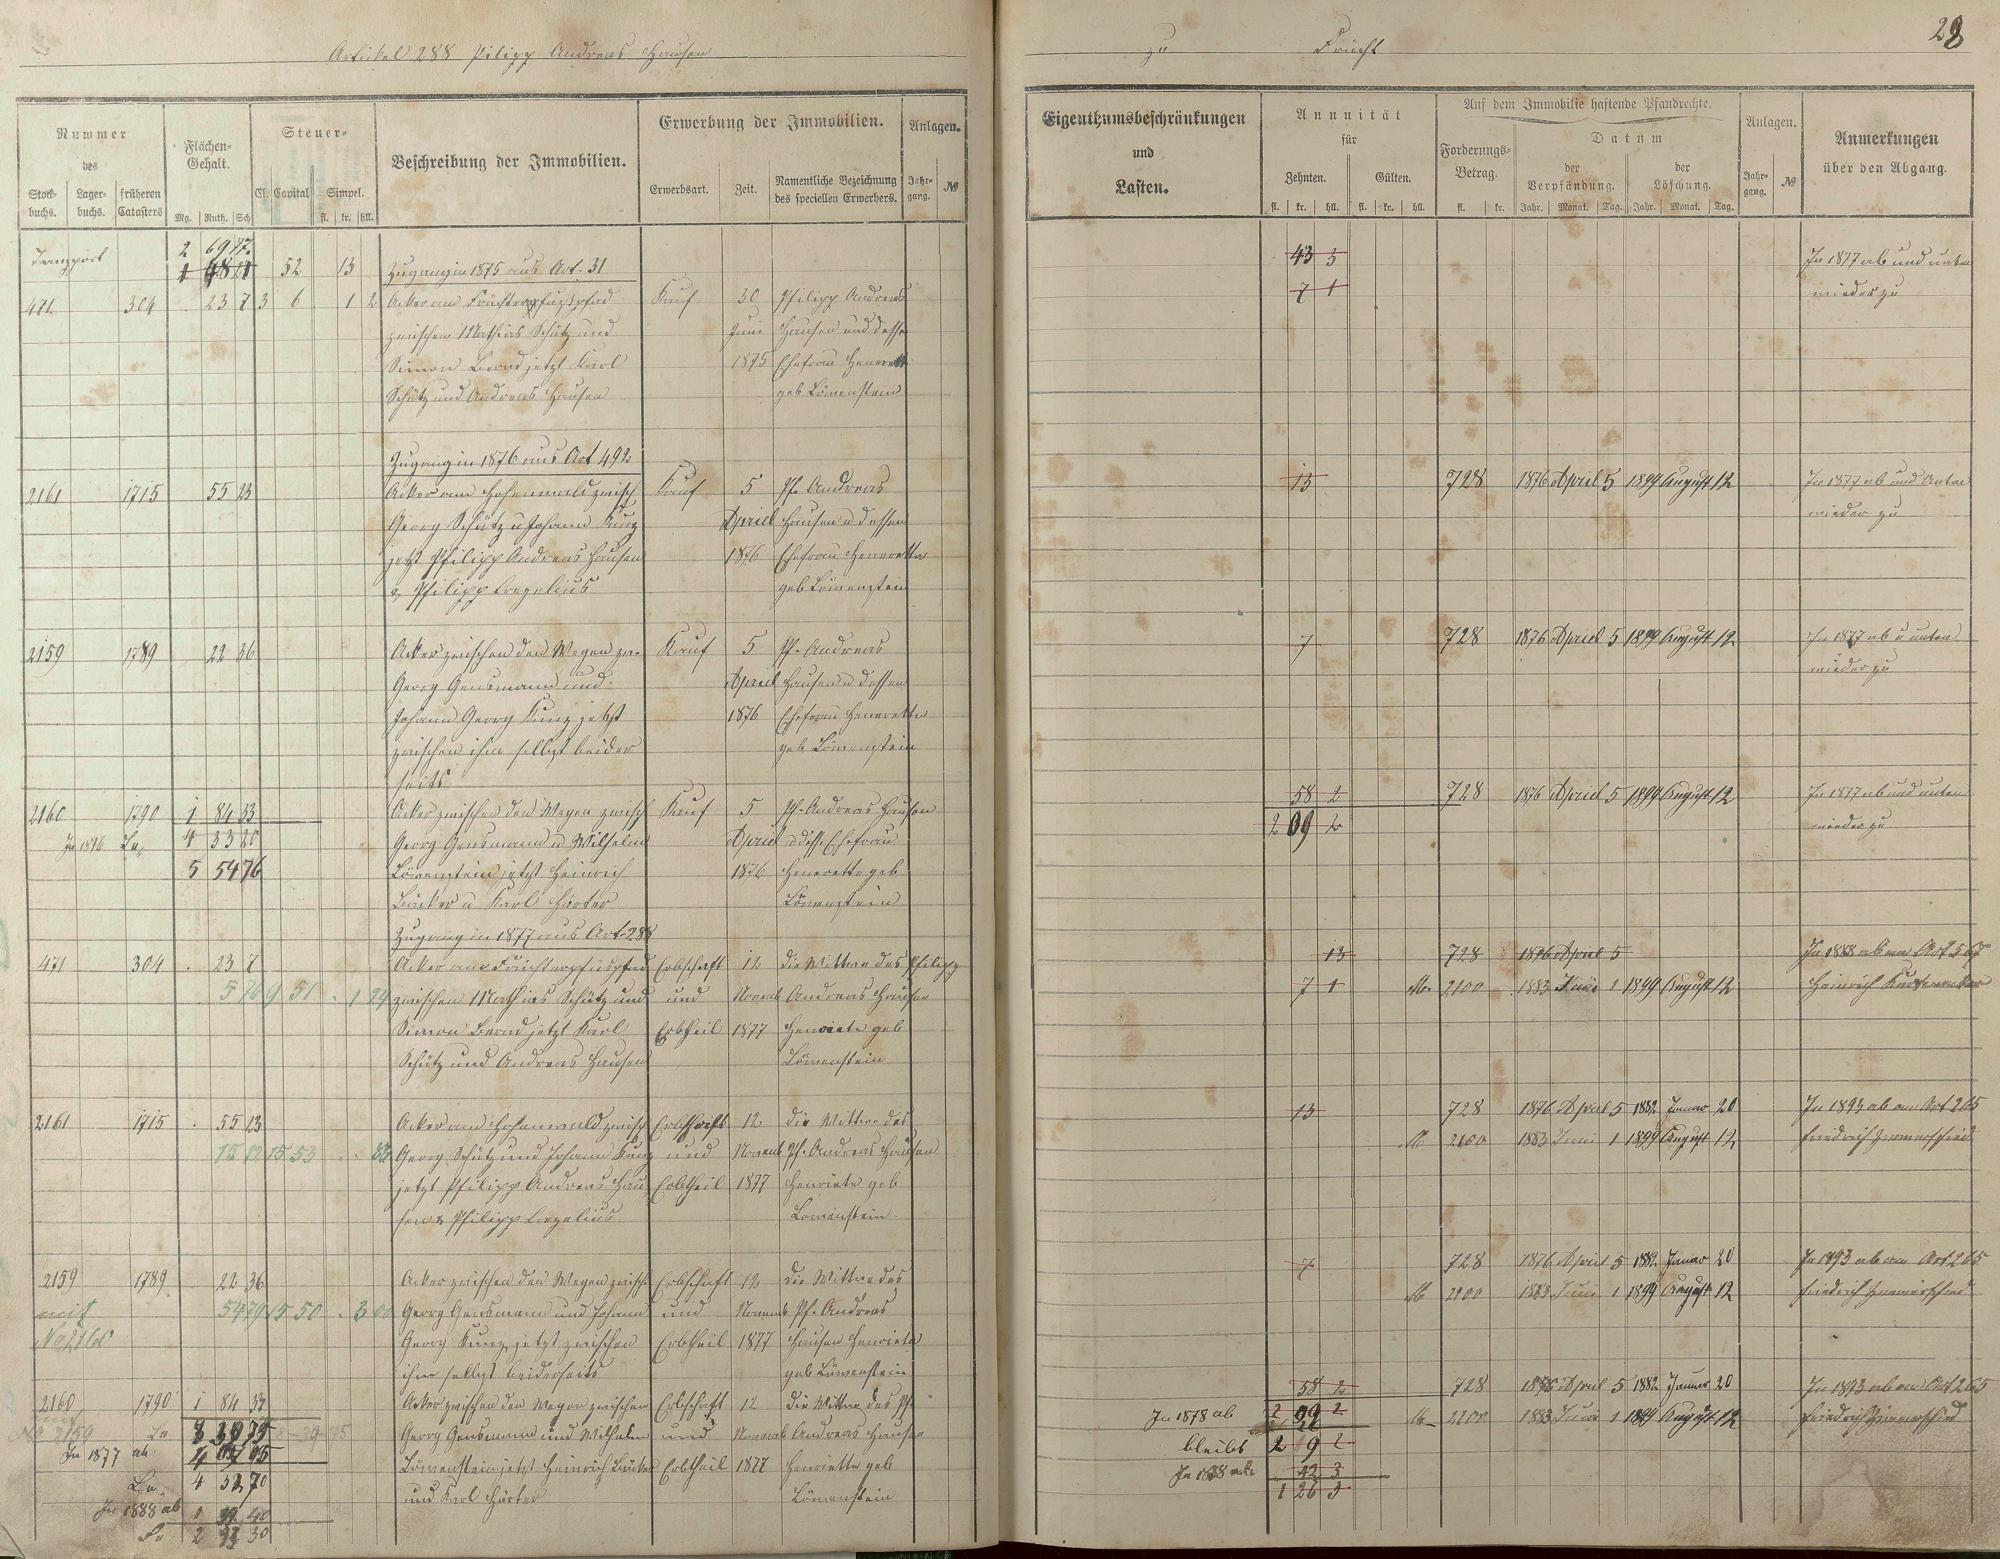 Artikel 288 Pilipp Andreas Hausen
Nummer
des
Stock-
buchs.
Lager-
buchs.
früheren
Catasters
Flächen-
Gehalt.
Mg. Ruth. Sch
Steuer-
Cl. Capital
Simpel.
fl. kr. hll.
Beschreibung der Immobilien.
Erwerbung der Immobilien.
Erwerbsart.
Zeit.
Namentliche Bezeichnung
des speciellen Erwerbers.
Anlagen.
Jahr-
gang.
№
Transport
2 69
52 13 Zugang in 1875 aus Art. 31
471. 304 23 7 3 6 1 2 Acker am Früchter Fußpfad Kauf 30 Philipp Andreas
zwischen Mathias Schütz und Juni Hausen und dessen
Simon Bernd jetzt Karl 1875 Ehefrau
Schütz und Andreas Hausen geb Löwenstein
Zugang in 1876 aus Art 492
2161 1715 55 23 Acker am Hohenwald zwisch Kauf 5 Ph. Andreas
Georg Schütz u Johann Kunz Apriel Hausen u dessen
jetzt Philipp Andreas Hausen 1876 Ehefrau Heneretta
& Philipp geb Löwenstein
2159 1789 22 36 Acker zwischen den Wegen zw. Kauf 5 Ph. Andreas
Georg Gensmann und Apriel Hausen u dessen
Johann Georg Kunz jetzt 1876 Ehefrau Heneretta
zwischen ihm selbst beider geb Löwenstein
seits
2160 1790 1 84 33 Acker zwischen den Wegen zwisch Kauf 5 Ph. Andreas Hausen
In 1876 La. 4 33 20 Georg Gensmann u Wilhelm Apriel u dess. Ehefrau
5 54 76 Löwenstein jetzt Heinrich 1876 Heneretta geb
u Karl Härter Löwenstein
Zugang in 1877 aus Art. 288
471 304 . 23 7 Acker am Früchterfußpfad Erbschaft 12 die Wittwe des Philipp
5 76 9 51 . 1 24 zwischen Mathias Schütz und und Novemb Andreas Hausen
Simon Bernd jetzt Karl Erbtheil 1877 Henriete geb
Schütz und Andreas Hausen Löwenstein
2161 1715 . 55 23 Acker am Hohenwald zwisch Erbschaft 12 die Wittwe des
15 53 Georg Schütz und Johann Kunz und Novemb Ph. Andreas Hausen
jetzt Philipp Andreas Hau Erbtheil 1877 Henriete geb
sen & Philipp Löwenstein
2159 1789 22 36 Acker zwischen den Wegen zwisch. Erbschaft 12 die Wittwe des
mit 15 50 Georg Gensmann und Johann und Novemb Ph. Andreas
No 2160 Georg Kunz jetzt zwischen Erbtheil 1877 Hausen Henriete
ihm selbst beiderseits geb Löwenstein
2160 1790 1 84 33 Acker zwischen den Wegen zwischen Erbschaft 12 die Wittwe des Ph.
No 2159 Georg Gensmann und Wilhelm und Novemb Andreas Hausen
In 1877 ab. Löwenstein jetzt Heinrich Erbtheil 1877 Henriette geb
La. 4 52 70 und Karl Härter Löwenstein
In 1888 ab 1 40
2 30
zu Frücht
28
Eigenthumsbeschränkungen
und
Lasten.
Annuität
für
Zehnten.
fl. kr. hll.
Gülten.
fl. kr. hll.
Auf dem Immobilie haftende Pfandrechte.
Forderungs-
Betrag.
fl. kr.
Datum
der
Verpfändung.
Jahr. Monat. Tag.
der
Löschung.
Jahr. Monat. Tag.
Anlagen.
Jahr-
gang.
№
Anmerkungen
über den Abgang.
43 3 In 1877 ab und unten
7 1 wieder zu
13 728 1876 April 5 1899 August 12 In 1877 ab und Unten
wieder zu
7 728 1876 Apriel 5 1899 August 12 In 1877 ab u unten
wieder zu
58 2 728 1876 Apriel 5 1899 August 12 In 1877 ab und unten
2 09 2 wieder zu
13 728 1876 April 5 In 1888 ab an Art 567
7 1 M. 2100 1883 Juni 1 1899 August 12 Heinrich
13 728 1876 April 5 1882 Januar 20 In 1893 ab an Art 265
M 2100 1883 Juni 1 1899 August 12 Friedrich Zimmerschied
7 728 1876 April 5 1882 Januar 20 In 1893 ab an Art 265
M 2100 1883 Juni 1 1899 August 12 Friedrich Zimmerschied
58 2 728 1876 April 5 1882 Januar 20 In 1893 ab an Art 265
In 1878 ab M. 2100 1883 Juni 1 1899 August 12 Friedrich Zimmerschied
bleibt 2 9 2
In 1888 42 3
1 26 3